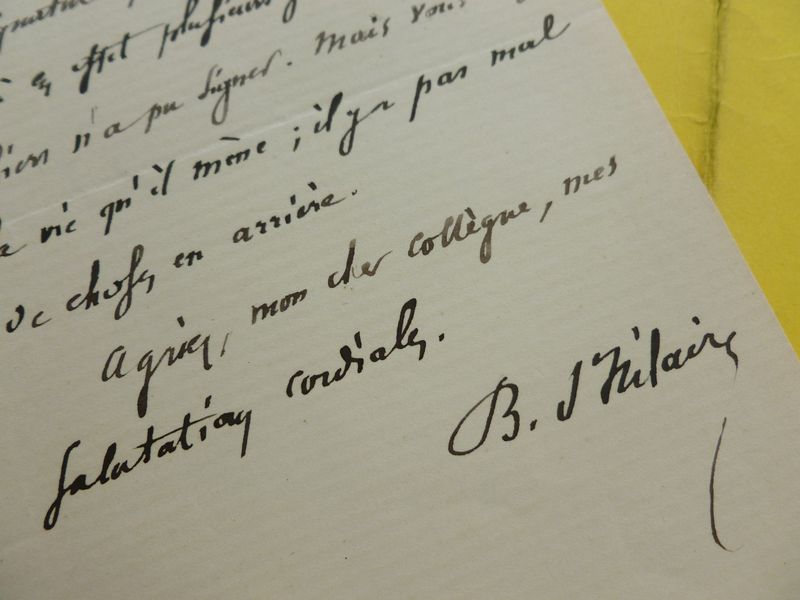 en effet plusieurs
n'a pu signer. Mais vous
vie qu'il mène ; il y a pas mal
de choses en arrière.
Agréez, mon cher collègue, mes
salutations cordiales.
B. St Hilaire